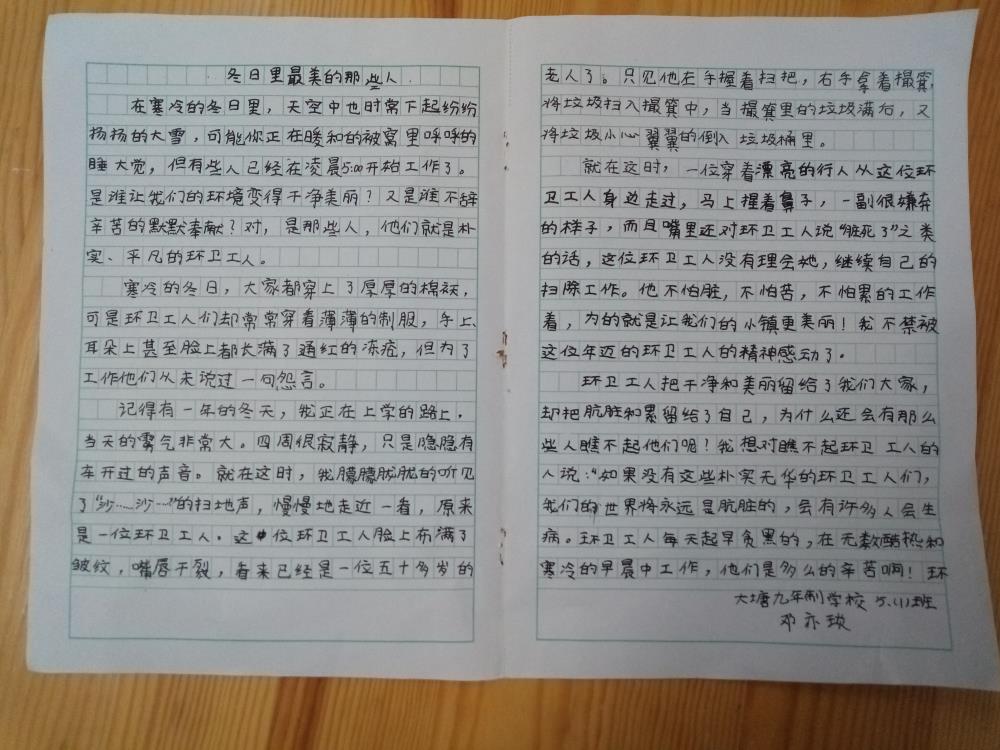 冬日里最美的那些人
在寒冷的冬日里，天空中也时常下起纷纷
扬扬的大雪，可能你正在暖和的被窝里呼呼的
睡大觉，但有些人已经在凌晨5:00开始工作了。
是谁让我们的环境变得干净美丽？又是谁不辞
辛苦的默默奉献？对，是那些人，他们就是朴
实、平凡的环卫工人。
寒冷的冬日，大家都穿上了厚厚的棉袄，
可是环卫工人们却常常穿着薄薄的制服，手上、
耳朵上甚至脸上都长满了通红的冻疮，但为了
工作他们从未说过一句怨言。
记得有一年的冬天，我正在上学的路上，
当天的雾气非常大。四周很寂静，只是隐隐有
车开过的声音。就在这时，我朦朦胧胧的听见
了“沙……沙……”的扫地声，慢慢地走近一看，原来
是一位环卫工人。这位环卫工人脸上布满了
皱纹，嘴唇干裂，看来已经是一位五十多岁的
老人了。只见他左手握着扫把，右手拿着撮箕，
将垃圾扫入撮箕中，当撮箕里的垃圾满后，又
将垃圾小心翼翼的倒入垃圾桶里。
就在这时，一位穿着漂亮的行人从这位环
卫工人身边走过，马上握着鼻子，一副很嫌弃
的样子，而且嘴里还对环卫工人说“脏死了”之类
的话，这位环卫工人没有理会她，继续自己的
扫除工作。他不怕脏，不怕苦，不怕累的工作
着，为的就是让我们的小镇更美丽！我不禁被
这位年迈的环卫工人的精神感动了。
环卫工人把干净和美丽留给了我们大家，
却把肮脏和累留给了自己，为什么还会有那么
些人瞧不起他们呢？我想对瞧不起环卫工人的
人说：“如果没有这些朴实无华的环卫工人们，
我们的世界将永远是肮脏的，会有许多人会生
病。环卫工人每天起早贪黑的，在无数酷热和
寒冷的早晨中工作，他们是多么的辛苦啊！环
大塘九年制学校 5.(1)班
邓亦